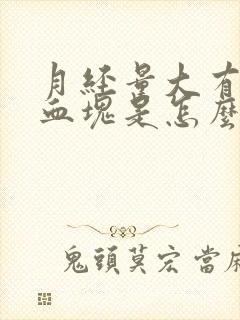 月经量大有
血塊是怎麼
鬼頭莫宏當麻